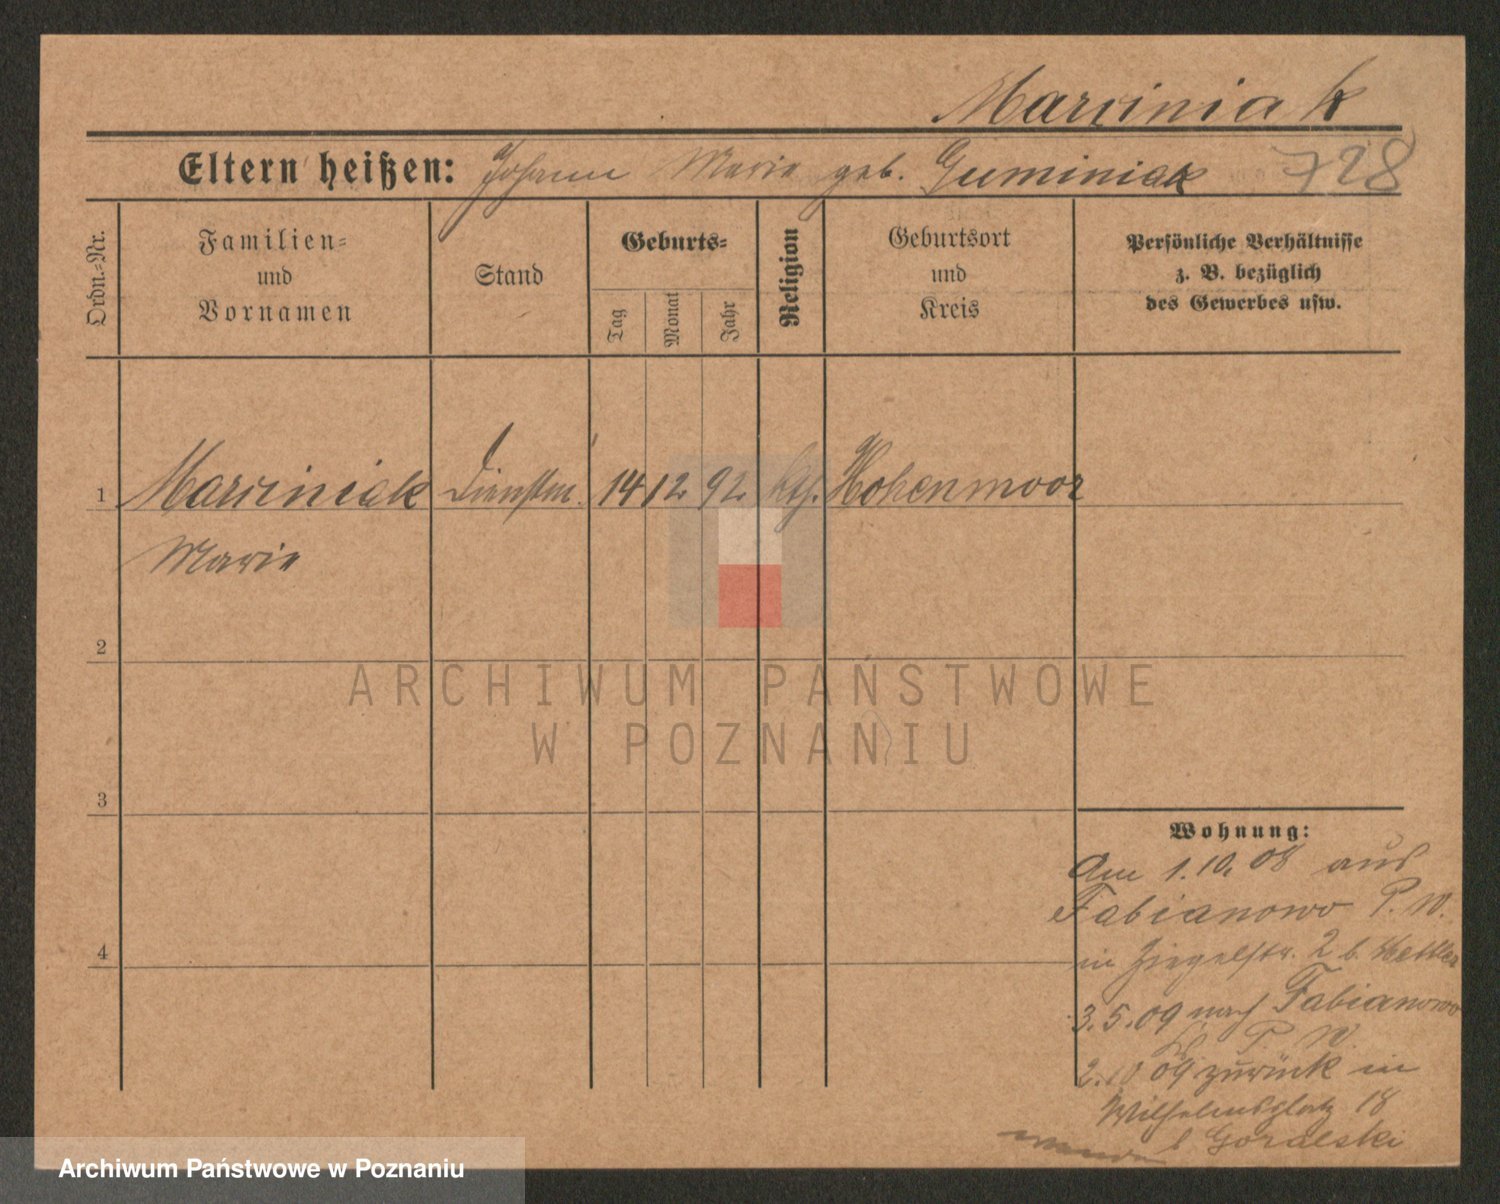 Marciniak
Eltern heißen: Johann Marie geb. Guminiak 728
Ordn.-Nr.
Familien-
und
Vornamen
Stand
Geburts-
Tag
Monat
Jahr
Religion
Geburtsort
und
Kreis
Persönliche Verhältnisse
z. B. bezüglich
des Gewerbes usw.
1 Marciniak Dienstm. 14 12 92 kth. Hohenmoor
Marie
2
ARCHIWUM PAŃSTWOWE
W POZNANIU
3
Wohnung:
Am 1.10.08 aus
Fabianowo P. W.
4
in Ziegelstr. 2 b.
3.5.09 nach Fabianowo
P. W.
2.10 09 zurück in
Wilhelmsplatz 18
b Goralski
Archiwum Państwowe w Poznaniu